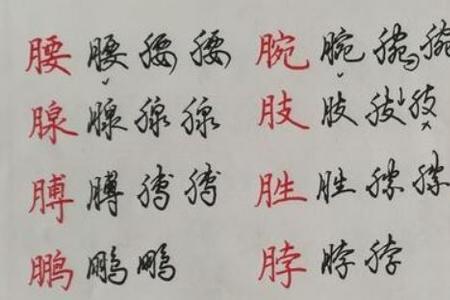 腰 腰 腰 腰 腕 腕 腕 腕
腺 腺 腺 腺 肢 肢 肢 肢
膊 膊 膊 膊 胜 胜
鹏 鹏 鹏 脖 脖 脖